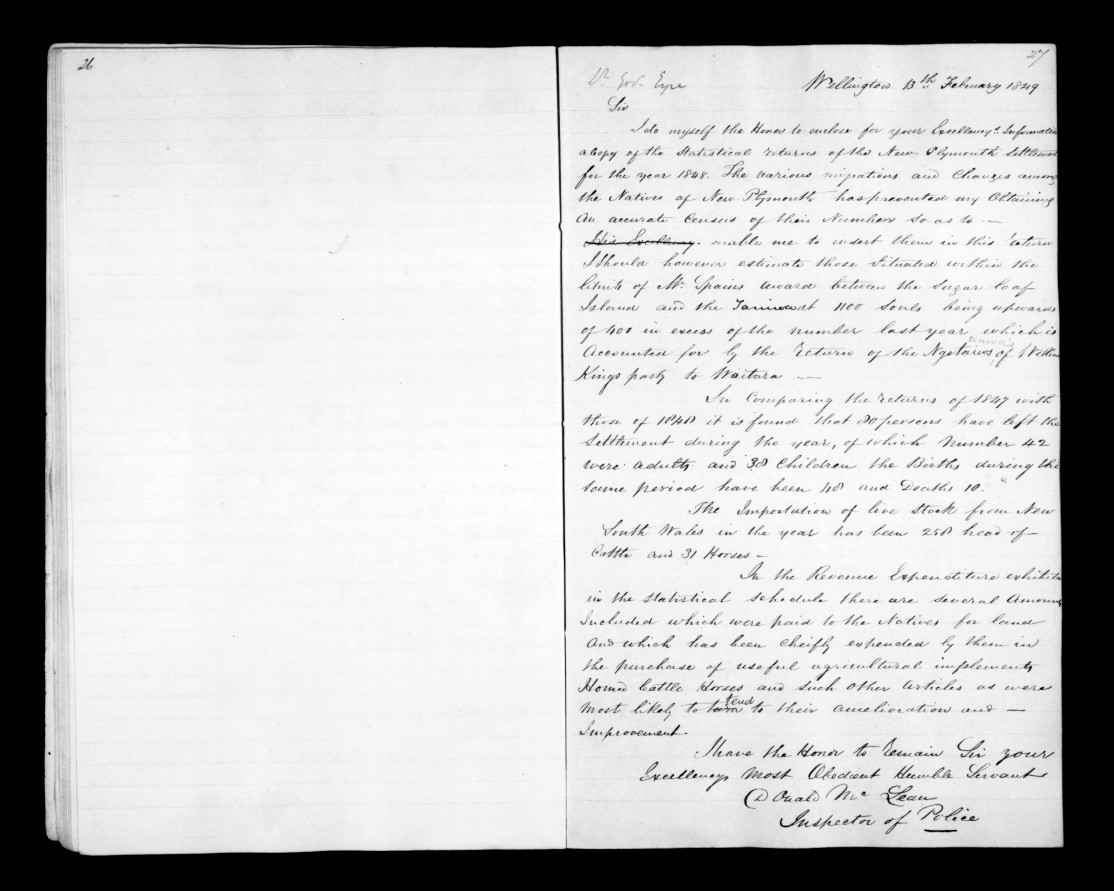 26
27
Lt Gov. Eyre
Wellington 13th February 1849
Sir
I do myself the Honor to enclose for your Excellency's Information
a Copy of the Statistical returns of the New Plymouth Settlement
for the year 1848. The various migrations and Changes among
the Natives of New Plymouth has prevented my Obtaining
An accurate Census of their Numbers so as to —
His Excellency. enable me to insert them in this return
I Should however estimate those Situated within the
limits of Mr Spains award between the Sugar loaf
Island and the Taniwa at 1100 Souls being upwards
of 400 in excess of the number last year which is
Accounted for by the return of the Ngatiawas of William
Kings party to Waitara —
In Comparing the returns of 1847 with
those of 1848 it is found that 80 persons have left the
Settlement during the year, of which Number 42
were adults and 38 Children the Births during the
same period have been 48 and Deaths 10.
The Importation of live Stock from New
South Wales in the year has been 258 head of
Cattle and 31 Horses —
In the Revenue Expenditure exhibited
in the statistical schedule there are several Amounts
Included which were paid to the Natives for land
And which has been cheifly expended by them in
the purchase of useful agricultural implements
Horned Cattle Horses and such other articles as were
Most likely to tend to their amelioration and —
Improvement.
I have the Honor to remain Sir your
Excellencys Most Obedient Humble Servant
Donald Mc Lean
Inspector of Police